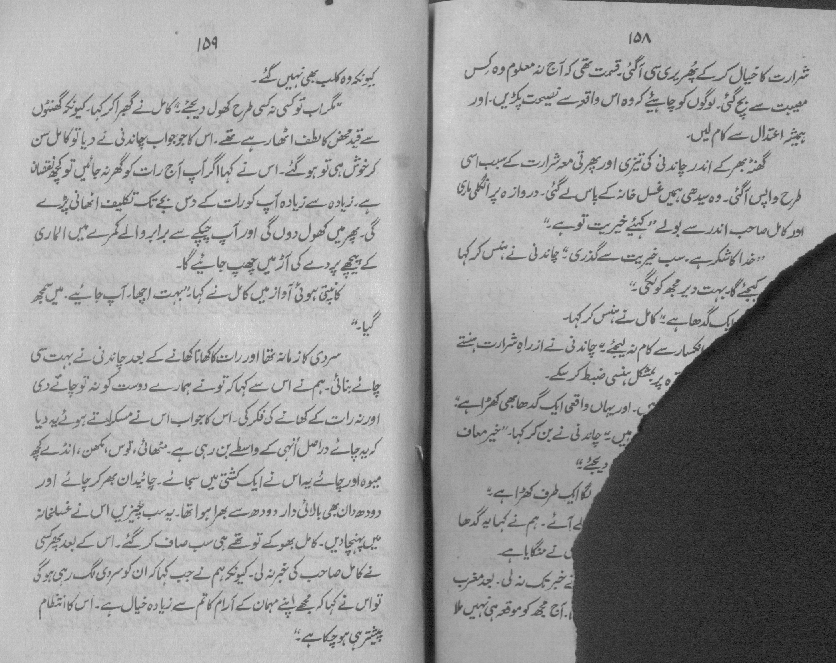 ۱۵۸
شرارت کا خیال کر کے پھریری سی آگئی۔ قسمت تھی کہ آج نہ معلوم وہ کِس
مصیبت سے بچ گئی۔ لوگوں کو چاہیئے کہ وہ اس واقعہ سے نصیحت پکڑیں۔ اور
ہمیشہ اعتدال سے کام لیں۔
گھنٹہ بھر کے اندر چاندنی کی تیزی اور پھرتی معہ شرارت کے سبب اسی
طرح واپس آگئی۔ وہ سیدھی ہمیں غسل خانہ کے پاس لے گئی۔ دروازہ پر انگلی ماری
اور کامل صاحب اندر سے بولے "کہیئے خیریت تو ہے۔"
"خدا کا شکر ہے۔ سب خیریت سے گذری۔" چاندنی نے ہنس کر کہا
کیجئے گا۔ بہت دیر مجھ کو لگی۔"
ایک گدھا ہے۔" کامل نے ہنس کر کہا۔
انکسار سے کام نہ لیجئے۔" چاندنی نے از راہِ شرارت ہنستے
پر بمشکل ہنسی ضبط کر سکے۔
اور یہاں واقعی ایک گدھا بھی کھڑا ہے۔
ہیں۔" چاندنی نے بن کر کہا۔ "خیر معاف
دیجئے۔"
لگا ایک طرف کھڑا ہے۔"
لے آئے۔ ہم نے کہا یہ گدھا
نے منگایا ہے
نے خبر تک نہ لی۔ بعد مغرب
آج مجھ کو موقعہ ہی نہیں ملا
۱۵۹
کیونکہ وہ کلب بھی نہیں گئے۔
"مگر اب تو کسی نہ کسی طرح کھول دیجئے۔" کامل نے گھبرا کر کہا۔ کیونکہ گھنٹوں
سے قید محض کا لطف اٹھا رہے تھے۔ اس کا جو جواب چاندنی نے دیا تو کامل سن
کر خوش ہی تو ہو گئے۔ اس نے کہا اگر آپ آج رات کو گھر نہ جائیں تو کچھ نقصان
ہے۔ زیادہ سے زیادہ آپ کو رات کے دس بجے تک تکلیف اٹھانی پڑے
گی۔ پھر میں کھول دوں گی اور آپ چپکے سے برابر والے کمرے میں الماری
کے پیچھے پردے کی آڑ میں چھپ جائیے گا۔
کانپتی ہوئی آواز میں کامل نے کہا۔ "بہت اچھا۔ آپ جائیے۔ میں سمجھ
گیا۔"
سردی کا زمانہ تھا اور رات کا کھانا کھانے کے بعد چاندنی نے بہت سی
چائے بنائی۔ ہم نے اس سے کہا کہ تو نے ہمارے دوست کو نہ تو چائے دی
اور نہ رات کے کھانے کی فکر کی۔ اس کا جواب اس نے مسکراتے ہوئے یہ دیا
کہ یہ چائے دراصل اُنہی کے واسطے بن رہی ہے۔ مٹھائی، توس، مکھن، انڈے کچھ
میوہ اور چائے یہ اس نے ایک کشتی میں سجائے۔ چائیدان بھر کر چائے اور
دودھ دان بھی بالائی دار دودھ سے بھرا ہوا تھا۔ یہ سب چیزیں اس نے غسلخانہ
میں پہنچا دیں۔ کامل بھوکے تو تھے ہی سب صاف کر گئے۔ اس کے بعد پھر کسی
نے کامل صاحب کی خبر نہ لی۔ کیونکہ ہم نے جب کہا کہ ان کو سردی لگ رہی ہوگی
تو اس نے کہا کہ مجھے اپنے مہمان کے آرام کا تم سے زیادہ خیال ہے۔ اس کا انتظام
پیشتر ہی ہو چکا ہے۔"